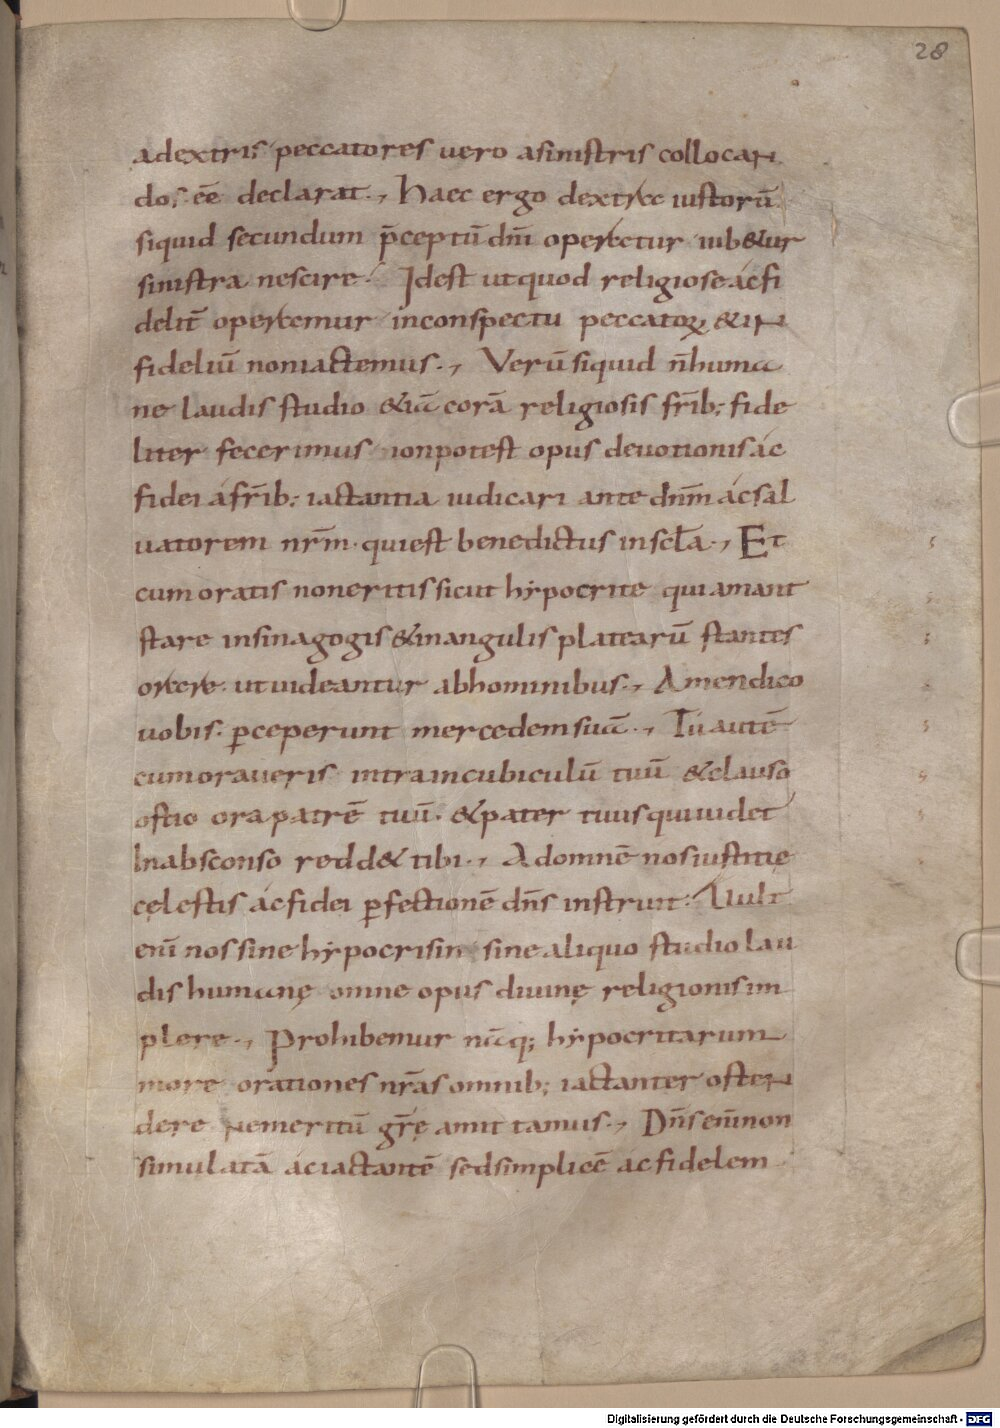 28
adextris peccatores vero asinistris collocan
dos eē declarat., Haec ergo dextrae iustorū
siquid secundum p̄ceptū dn̄i operaretur iub&ur
sinistra nescire. Idest utquod religiose ácfi
delit̄ operamur inconspectu peccatoꝝ &in
fideliū noniactemus., Verū siquid n̄huma
ne laudis studio &iā corā religiosis fr̄ib; fide
liter fecerimus nonpotest opus deuotionis ác
fidei áfr̄ib; iactantia iudicari ante dnm̄ ácsal
uatorem nr̄m. quiest benedictus inscl̄a., Et
cum oratis noneritis sicut hẏpocrite qui amant
stare insinagogis &inangulis platearū stantes
orare. utuideantur abhominibus., Amen dico
uobis. ꝑceperunt mercedem suā., Tu autē
cum oraueris intra incubiculū tuū &clauso
ostio ora patrē tuū. &pater tuus quiuidet
Inabsconso redd& tibi., Adomnē nos iustitię
cęlestis ácfidei ꝑfectionē dn̄s instruit. Vult
enī nos sine hẏpocrisin sine aliquo studio lau
dis humanę omne opus diuinę religionis im
plere., Prohibemur nāq; hẏpocritarum
more orationes nr̄as omnib; iactanter osten
dere nemeritū gr̄ę amittamus., Dn̄s enī non
simulatā áciactantē sedsimplicē ácfidelem
Digitalisierung gefördert durch die Deutsche Forschungsgemeinschaft - DFG